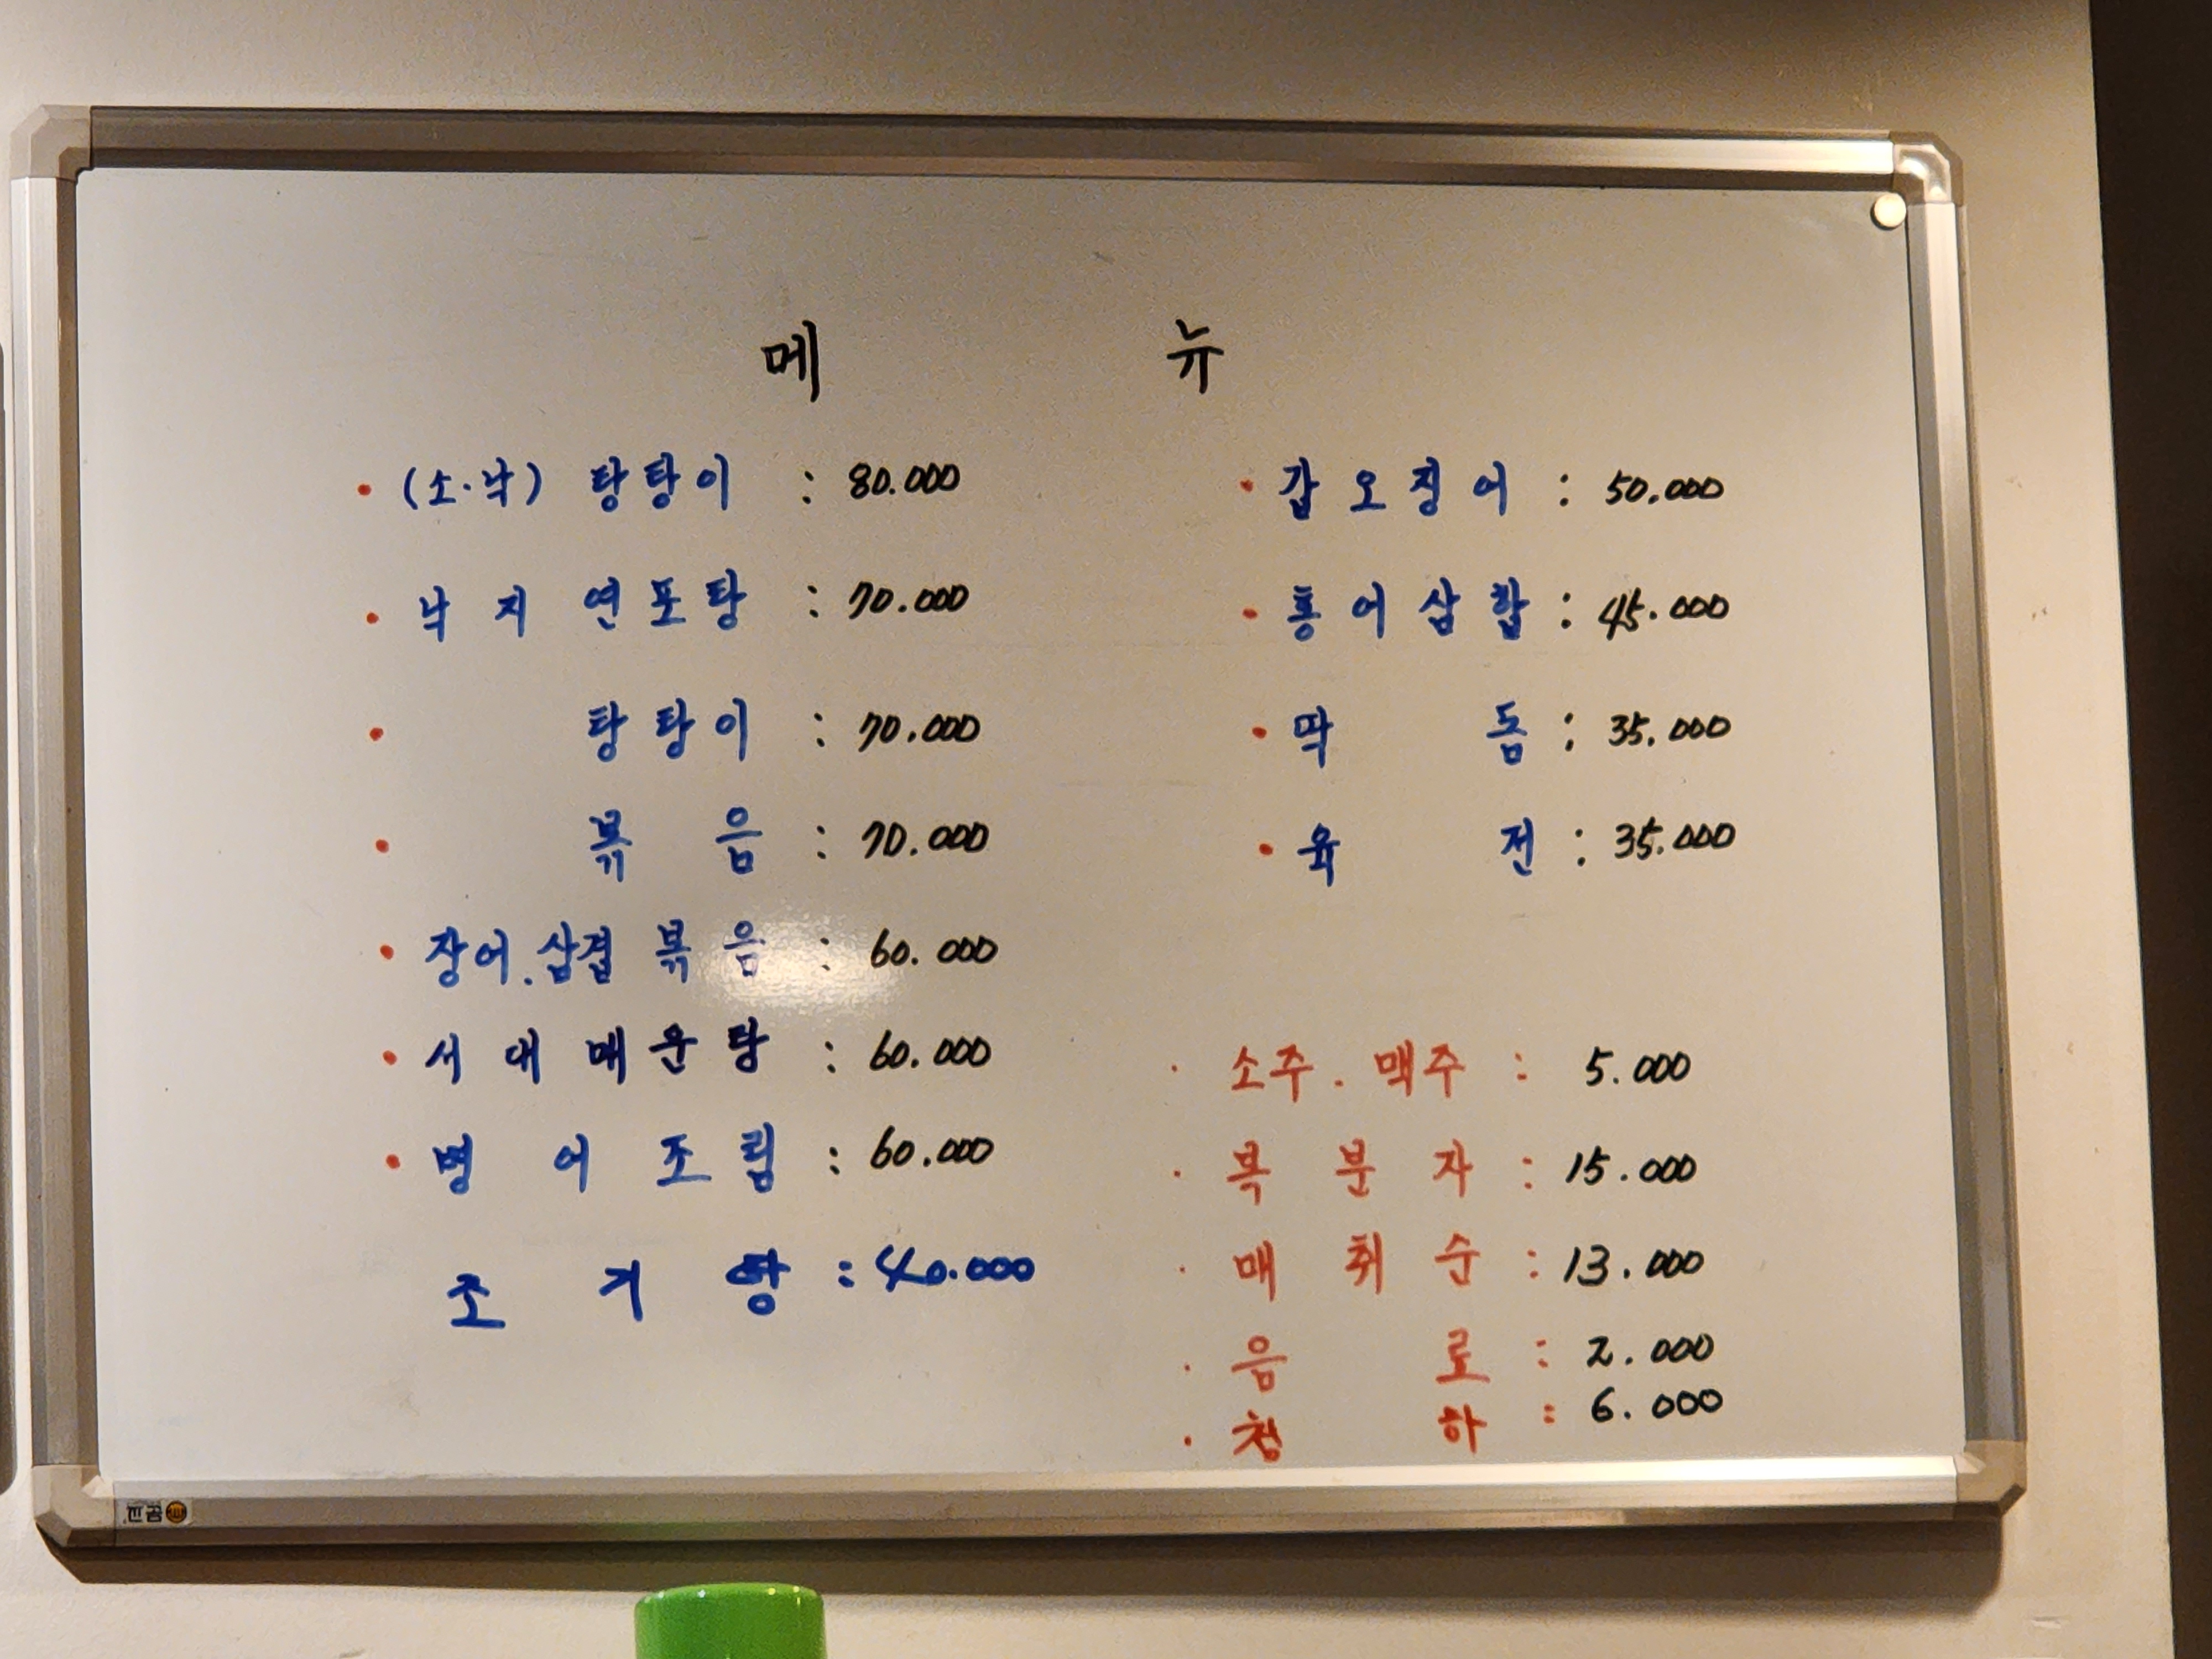 메 뉴
(소.낙) 탕탕이 : 80.000
낙지 연포탕 : 70.000
탕탕이 : 70.000
볶음 : 70.000
장어.삼겹 볶음 : 60.000
서대 매운탕 : 60.000
병어조림 : 60.000
조기탕 : 40.000
갑오징어 : 50.000
홍어삼합 : 45.000
딱돔 : 35.000
육전 : 35.000
소주.맥주 : 5.000
복분자 : 15.000
매취순 : 13.000
음료 : 2.000
청하 : 6.000